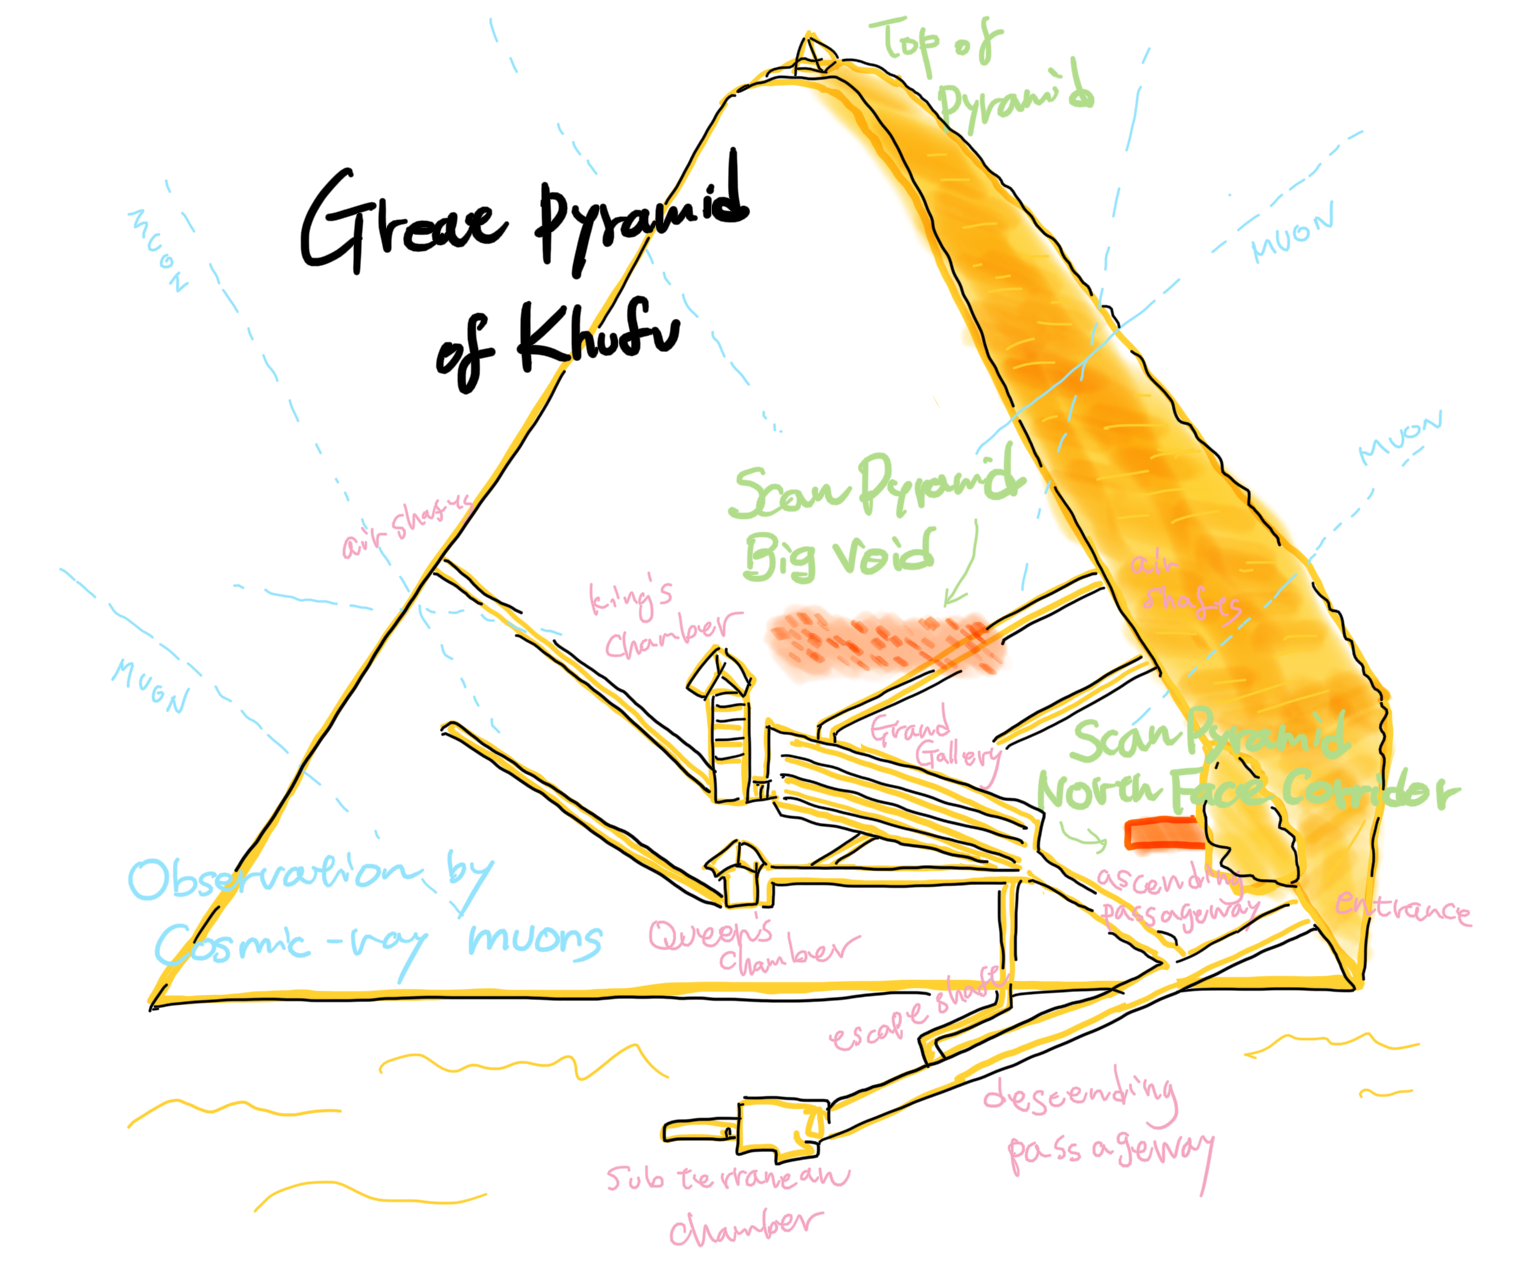 Top of
Pyramid
Great Pyramid
of Khufu
MUON
MUON
MUON
MUON
Scan Pyramid
Big Void
air shafts
king's
chamber
air
shafts
Grand
Gallery
Scan Pyramid
North Face Corridor
Observation by
Cosmic-ray muons
Queen's
chamber
ascending
passageway
entrance
escape shaft
descending
passageway
Subterranean
chamber